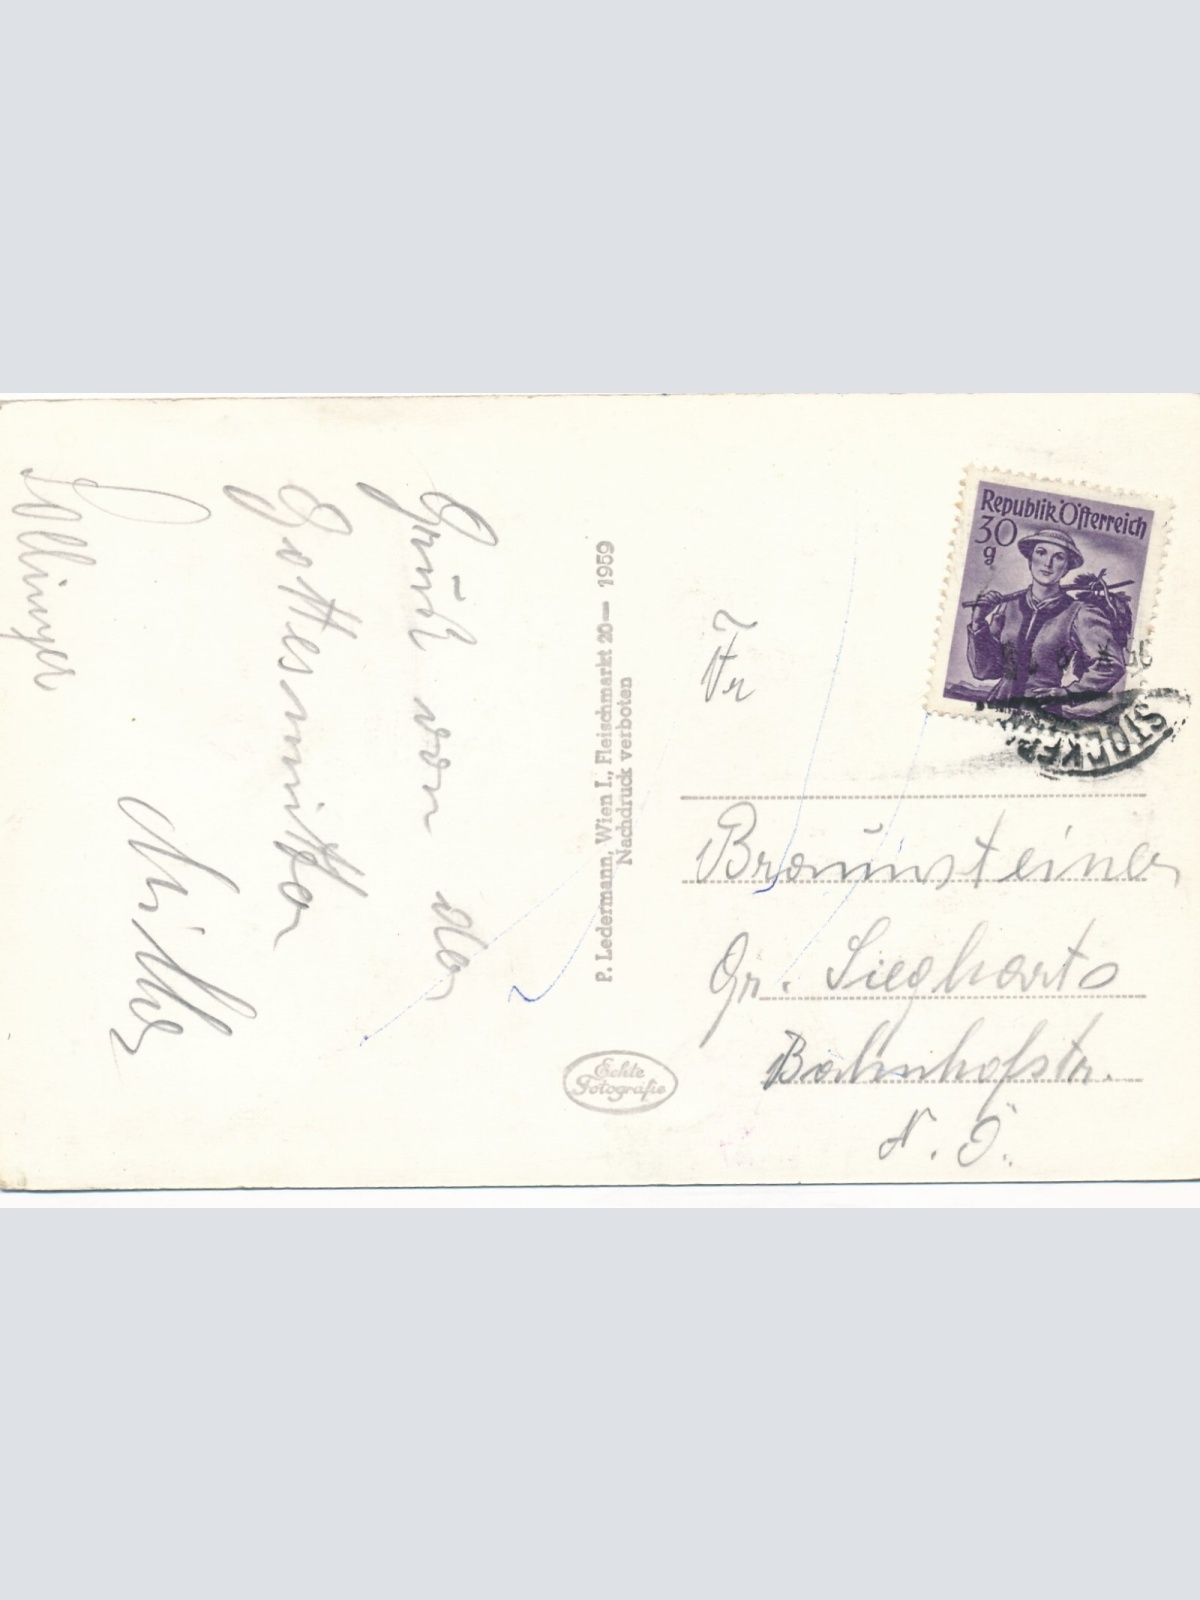 Gruß von der
Gottesmutter
Müller
Sollinger
P. Ledermann, Wien I., Fleischmarkt 20— 1959
Nachdruck verboten
Echte
Fotografie
Republik Österreich
30
g
STOCKERAU
Fr
Braunsteiner
Gr. Siegharts
Bahnhofstr.
N. Ö.